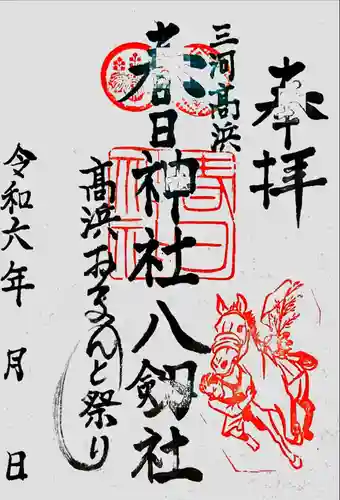 奉拝
三河高浜
春日神社八剱社
高浜おまんと祭り
令和六年 月 日
春日
神社